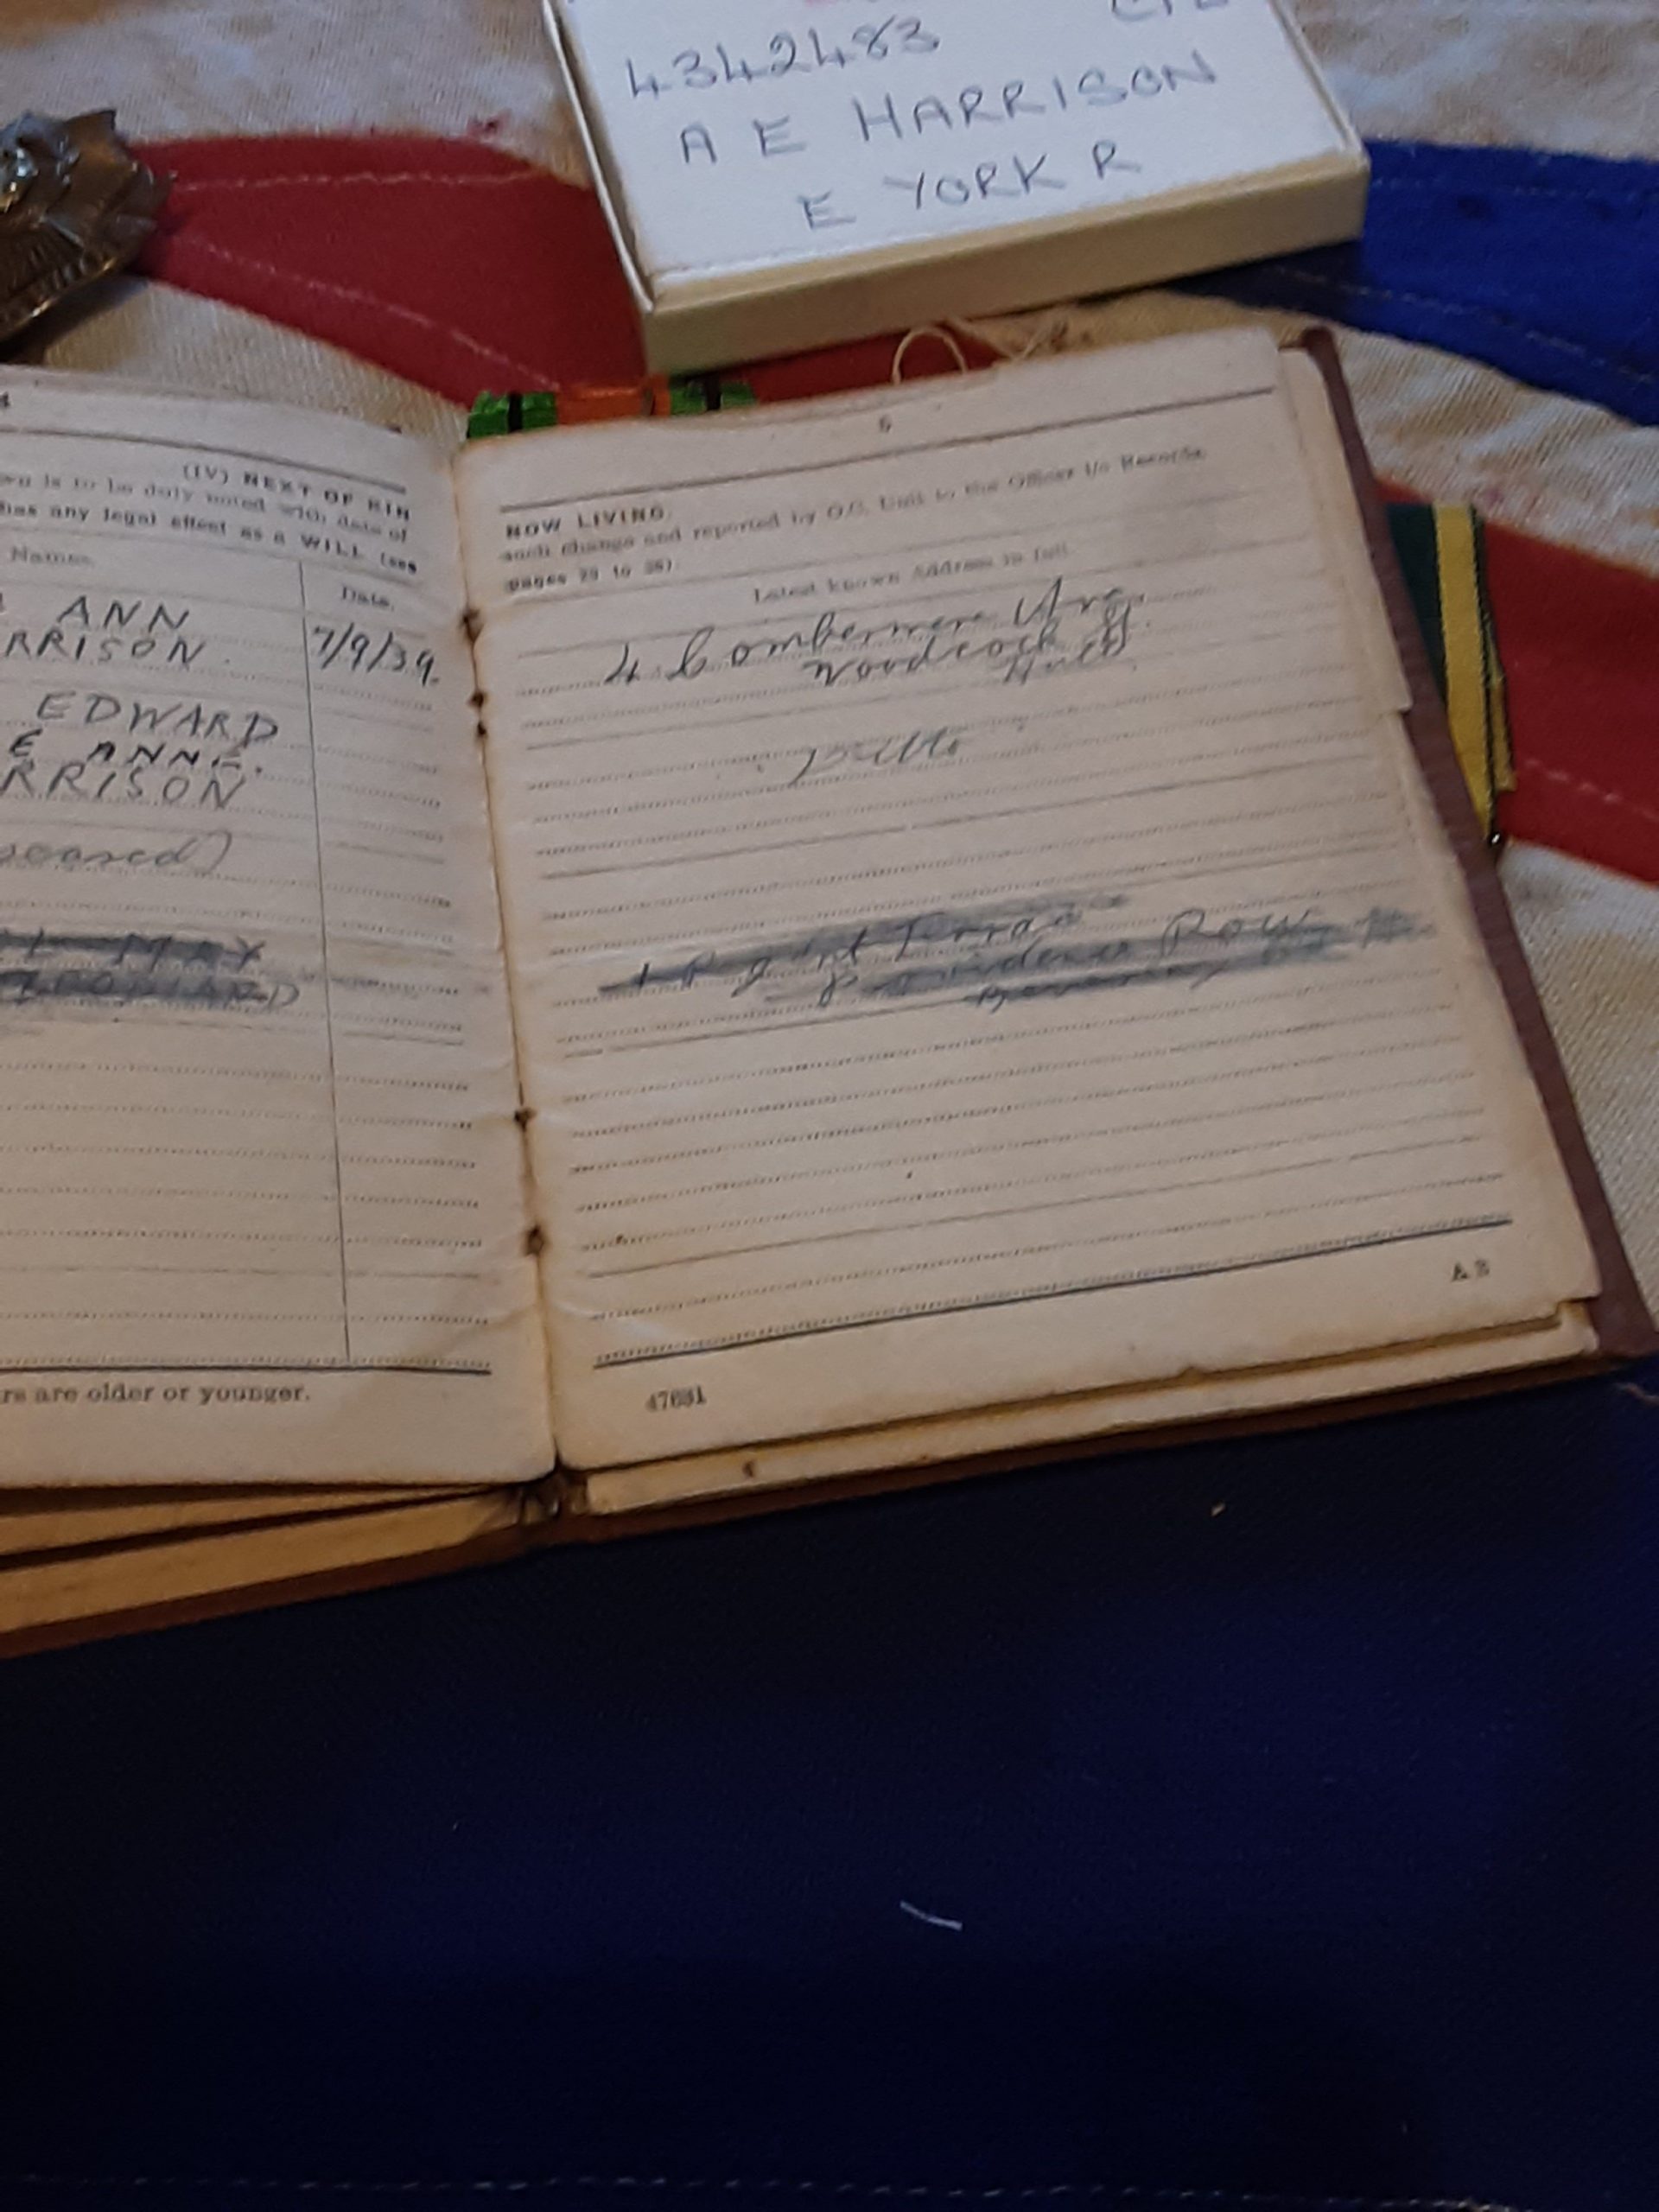 4342483
A E HARRISON
E YORK R
(IV) NEXT OF KIN
is to be duly noted with date of
has any legal effect as a WILL (see
Names
Date.
ANN
RRISON 7/9/39.
EDWARD
E ANNE.
RRISON
MAY
rs are older or younger.
5
NOW LIVING.
such change and reported by O.C. Unit to the Officer i/c Records.
pages 23 to 26)
Latest known Address in full
4 Combermere
Woodcock St.
Hull
Ditto
1 Terrace
Providence Row
Beverley
47681